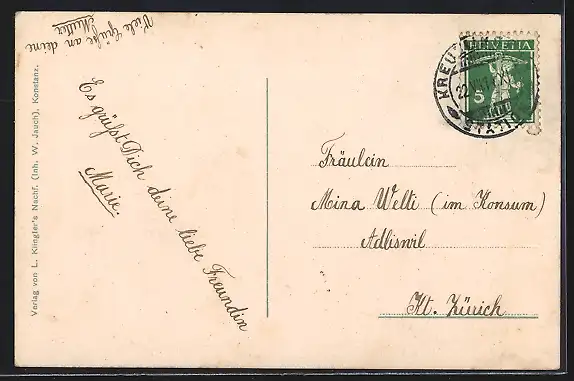 Viele Grüße an deine
Mutter
Es grüßt Dich deine liebe Freundin
Marie.
Verlag von L. Klingler's Nachf. (Inh. W. Jauch), Konstanz.
HELVETIA
5
Fräulein
Mina Welti (im Konsum)
Adliswil
Kt. Zürich